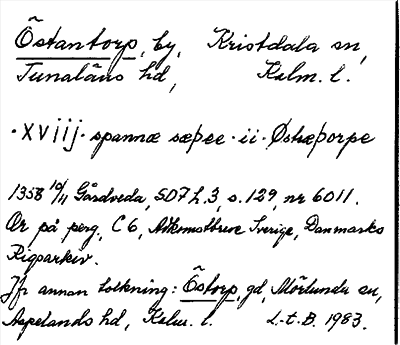 Östantorp, by, Kristdala sn,
Tunaläns hd, Kalm. l.
· xviij · spannæ sæþee · ii · Østræþorpe
1358 10/11 Gårdveda, SD 7 h. 3, s. 129, nr 6011.
Or på perg., C 6, Adkomstbreve Sverige, Danmarks
Rigsarkiv.
Jfr annan tolkning: Östorp, gd, Mörlunda sn,
Aspelands hd, Kalm. l. L.t.B. 1983.